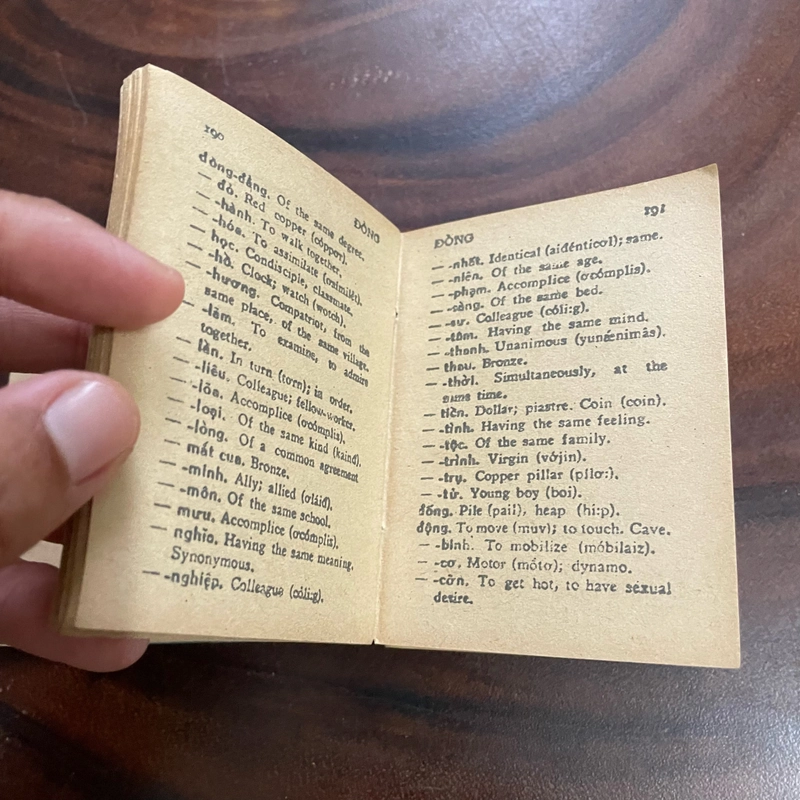 190
ĐỒNG
đồng-đẳng. Of the same degree.
— đỏ. Red copper (cóppơr).
— -hành. To walk together.
— -hóa. To assimilate (ơsímilét).
— học. Condisciple, classmate.
— -hồ. Clock; watch (wotch).
— -hương. Compatriot, from the
same place, of the same village.
— -lãm. To examine, to admire
together.
— lần. In turn (tơrn); in order.
— -liêu. Colleague; fellow-workes.
— -lõa. Accomplice (ơcómplis).
— -loại. Of the same kind (kaind).
— -lòng. Of a common agreement
— mắt cua. Bronze.
— -minh. Ally; allied (ơláid).
— -môn. Of the same school.
— mưu. Accomplice (ơcómplis).
— nghĩa. Having the same meaning.
Synonymous.
— -nghiệp. Colleague (cóli:g).
ĐỒNG
191
— -nhất. Identical (aidénticơl); same.
— -niên. Of the same age.
— -phạm. Accomplice (ơcómplis).
— -sàng. Of the same bed.
— -sự. Colleague (cóli:g).
— -tâm. Having the same mind.
— -thanh. Unanimous (yunǽenimâs).
— thau. Bronze.
— -thời. Simultaneously, at the
same time.
— tiền. Dollar; piastre. Coin (coin).
— -tình. Having the same feeling.
— -tộc. Of the same family.
— -trinh. Virgin (vớjin).
— -trụ. Copper pillar (pílơ:).
— -tử. Young boy (boi).
đống. Pile (pail), heap (hi:p).
động. To move (muv); to touch. Cave.
— -binh. To mobilize (móbilaiz).
— -cơ. Motor (mốtơ); dynamo.
— -cỡn. To get hot, to have sexual
desire.